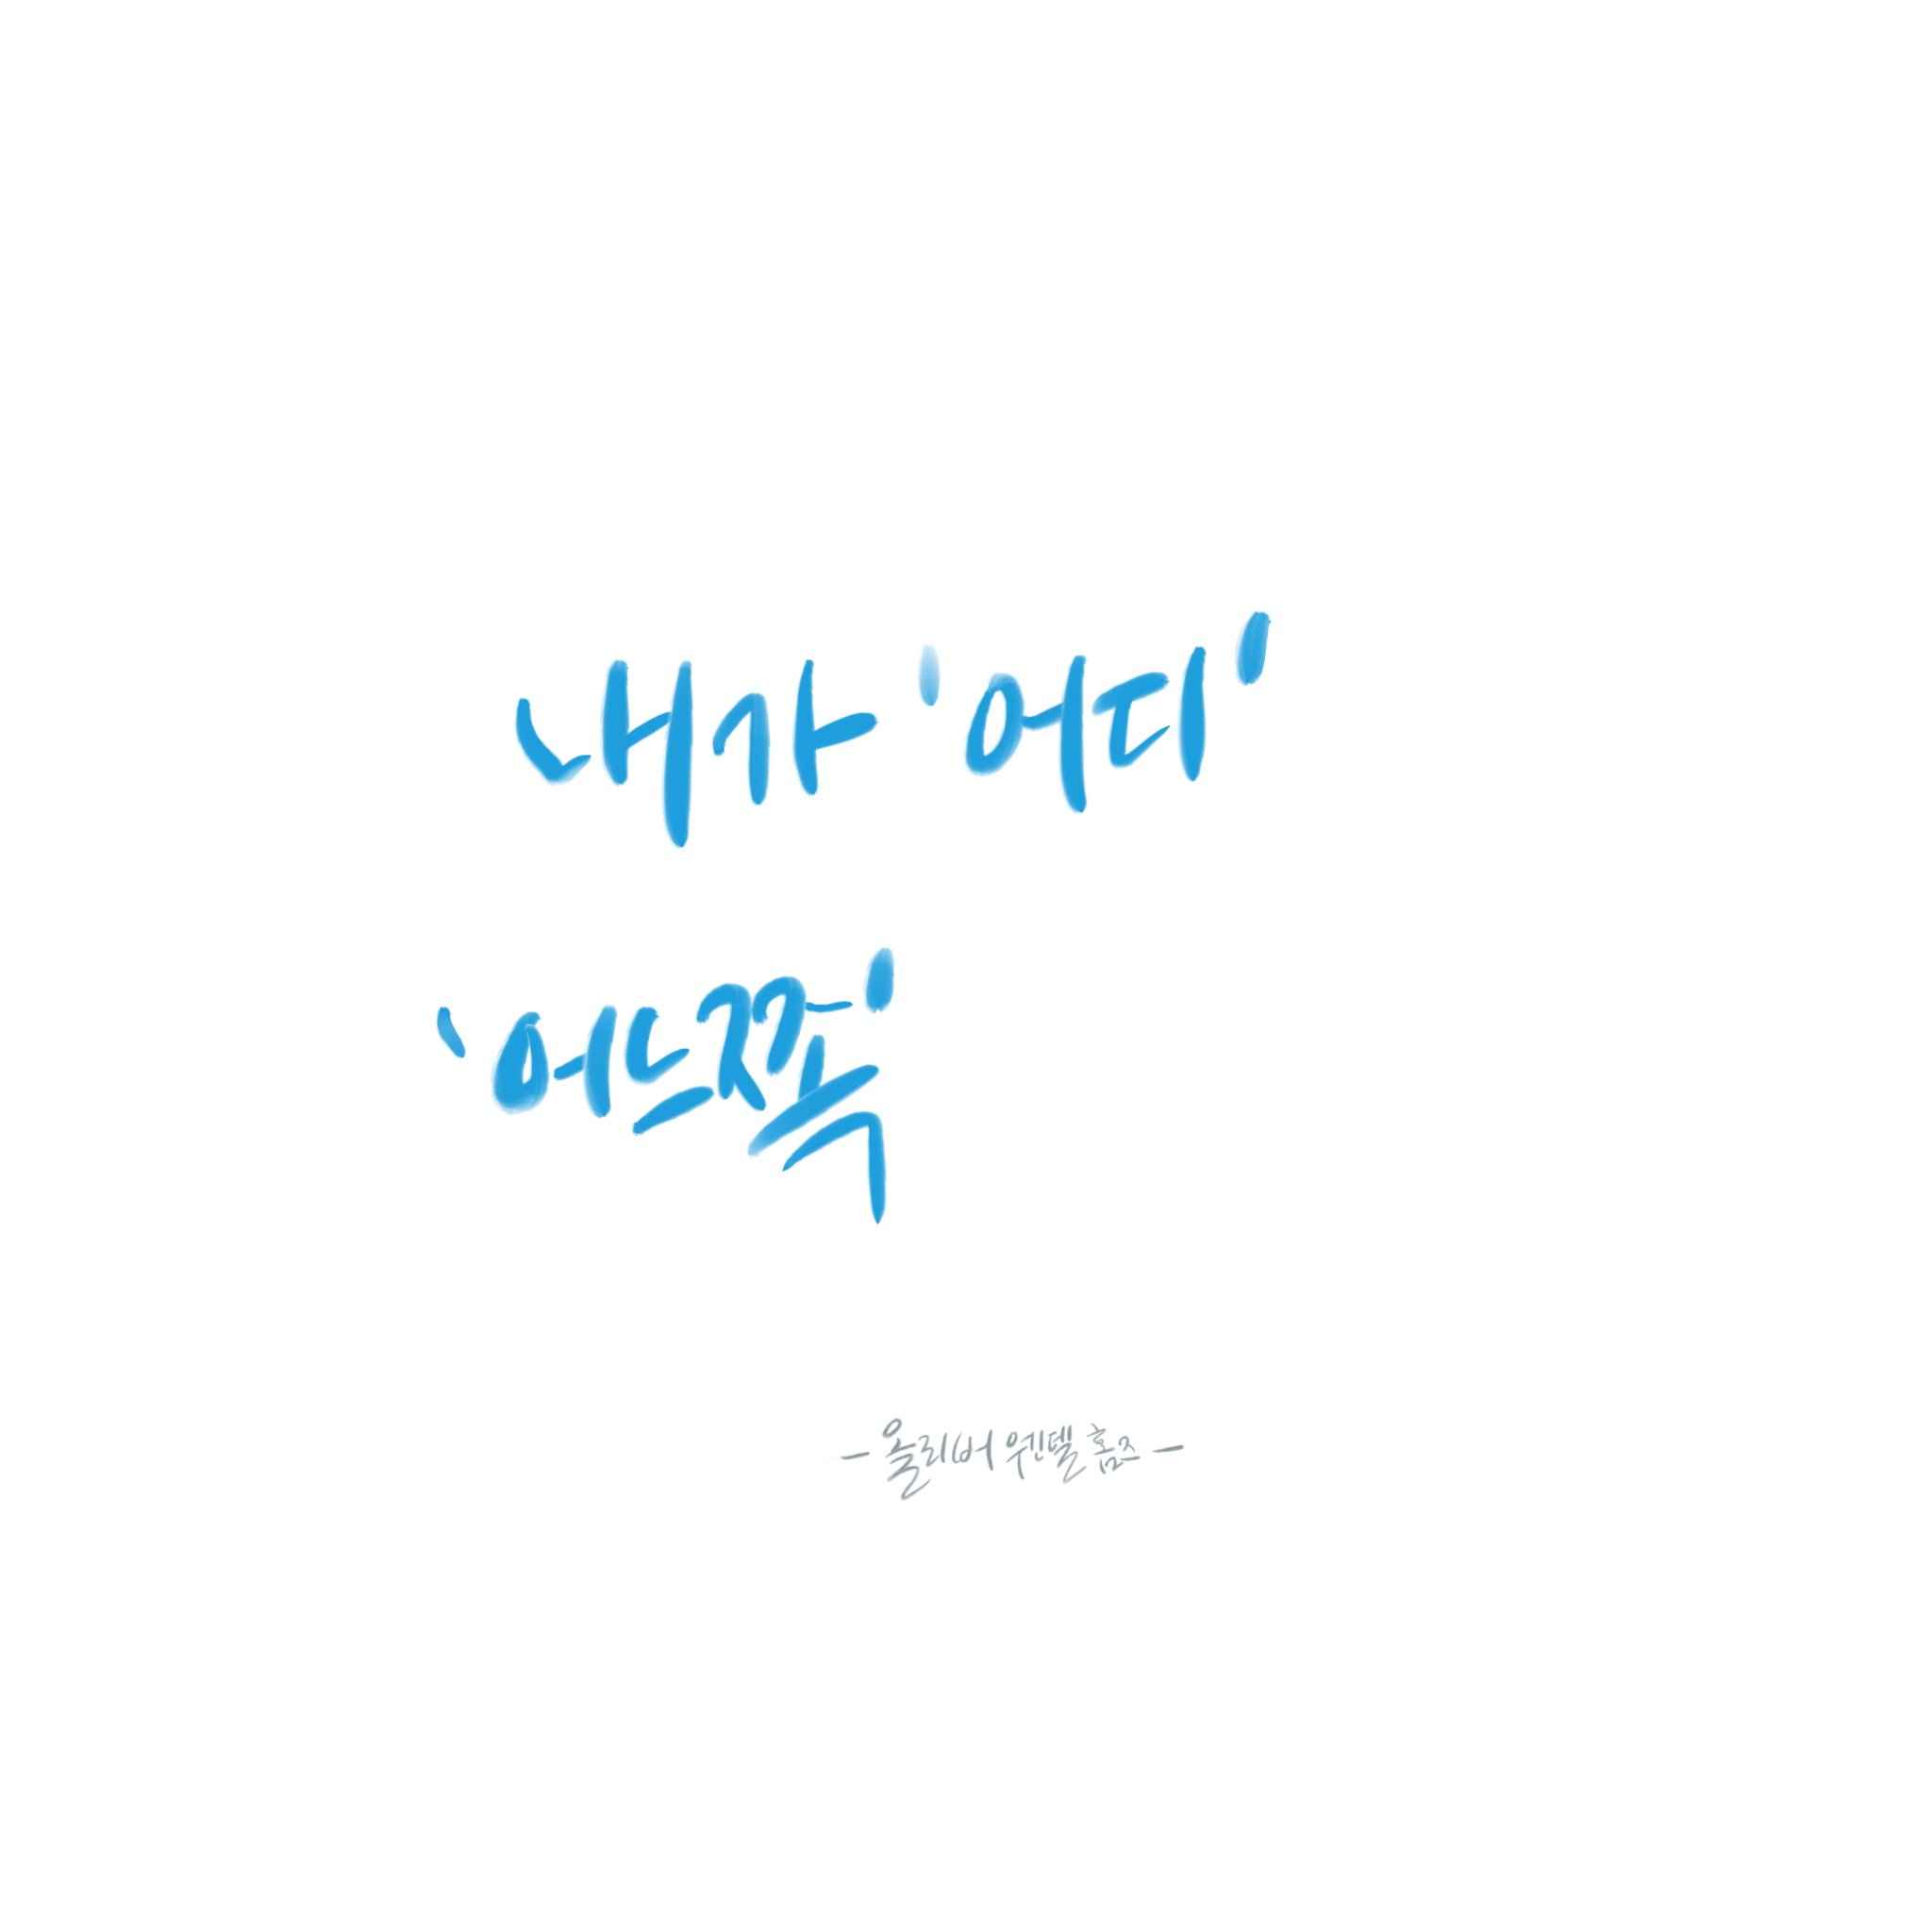 내가 '어디'
'어느쪽'
- 올리버 웬델 홈즈 -